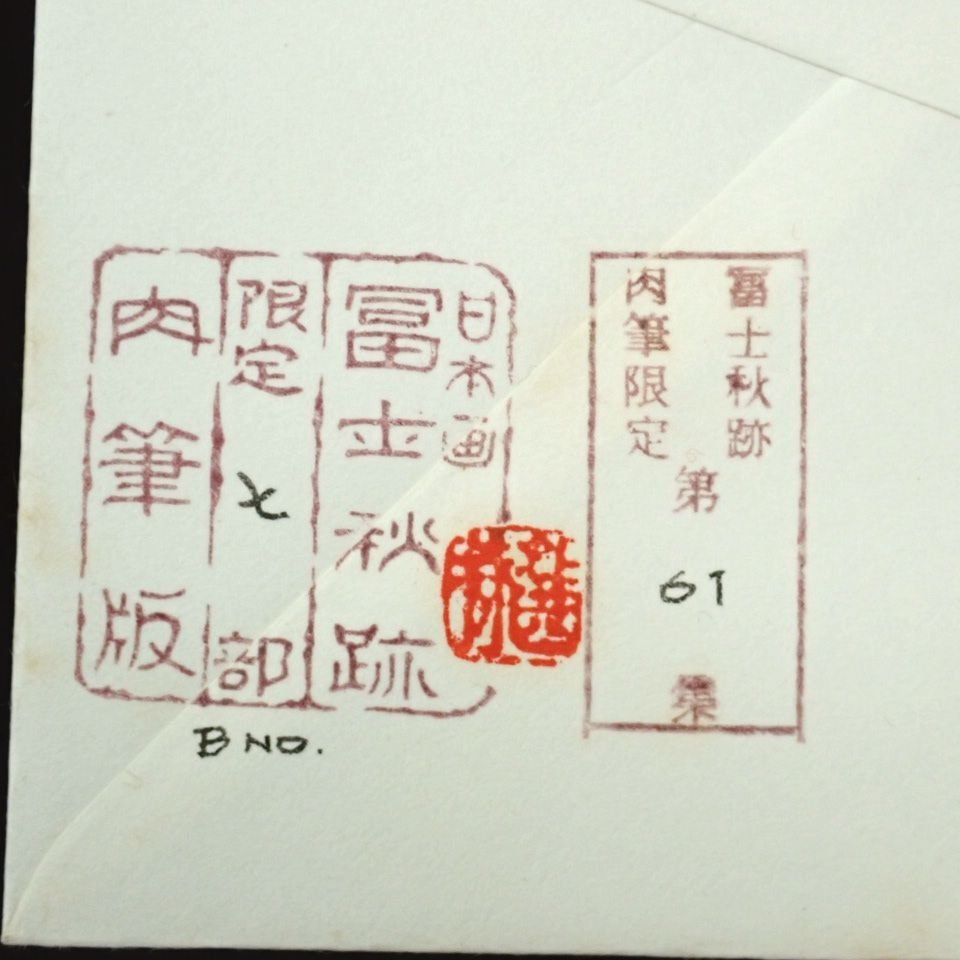 日本画
冨士秋跡
限定 七 部
肉筆版
B NO.
冨士秋跡
第 61
肉筆限定